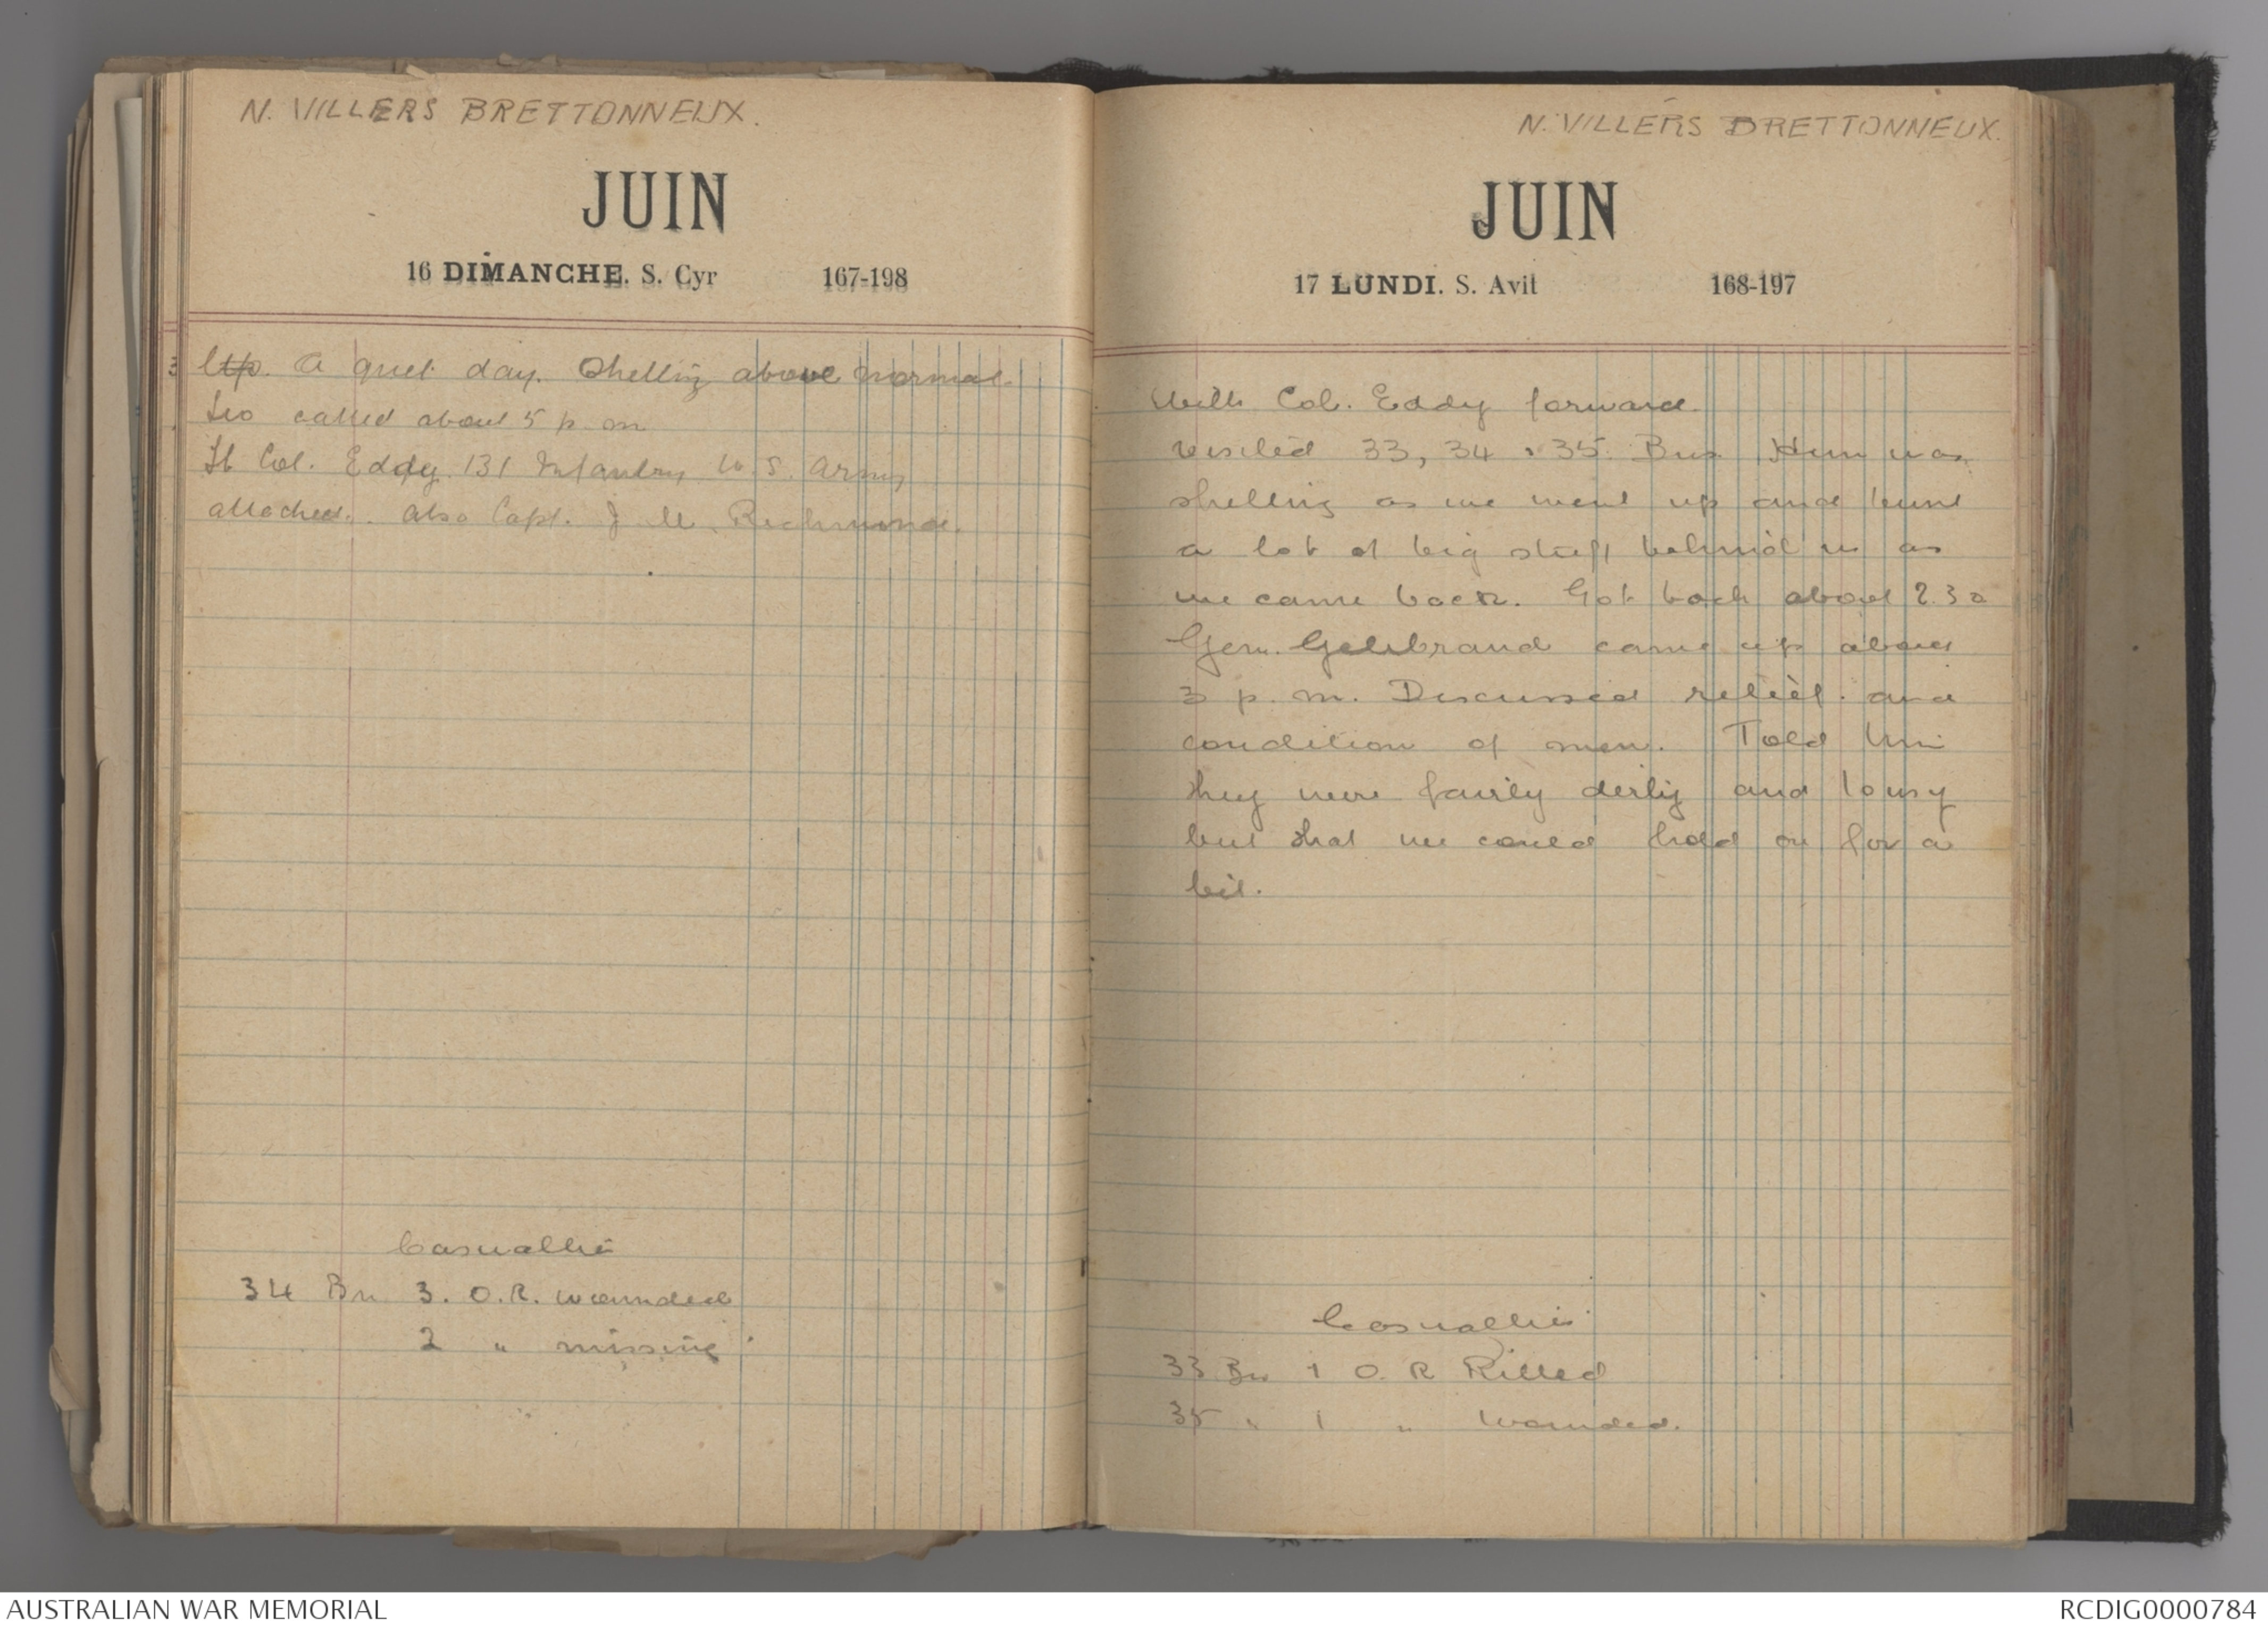 N. VILLERS BRETTONNEUX.
JUIN
16 DIMANCHE. S. Cyr 167-198
A quiet day. Shelling above normal.
Leo called about 5 p.m
Lt Col. Eddy 131 Infantry U.S. Army
attached. Also Capt. J. M. Richmond.
Casualties
34 Bn 3. O.R. wounded
2 " missing
N. VILLERS BRETTONNEUX.
JUIN
17 LUNDI. S. Avit 168-197
With Col. Eddy forward.
visited 33, 34 & 35 Bns Hun was
shelling as we went up and burst
a lot of big stuff behind us as
we came back. Got back about 2.30
Gen. Gellibrand came up about
3 p.m. Discussed relief and
condition of men. Told him
they were fairly dirty and lousy
but that we could hold on for a
bit.
Casualties
33 Bn 1 O.R Killed
35 " 1 " Wounded.
AUSTRALIAN WAR MEMORIAL
RCDIG0000784